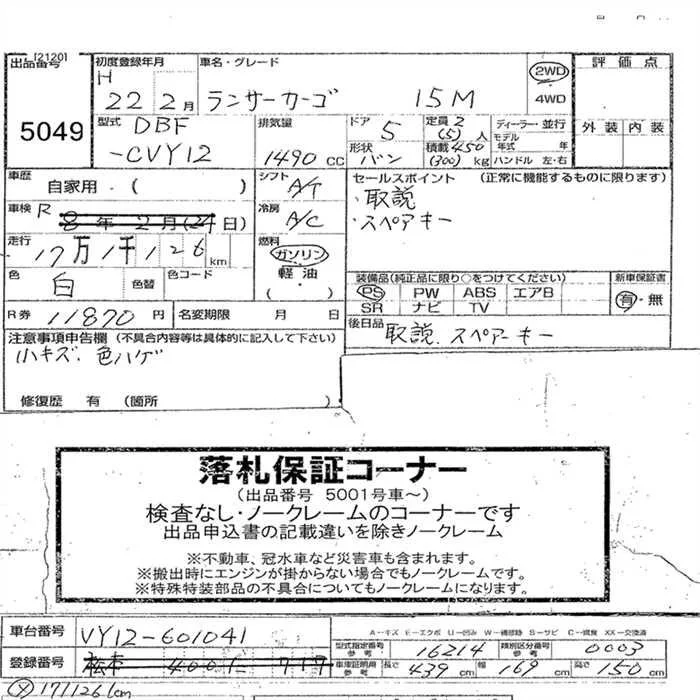 [2120]
出品番号 5049
初度登録年月 H 22 2月
車名・グレード ランサーカーゴ 15M
2WD 4WD
評価点
外装 内装
型式 DBF-CVY12
排気量 1490 CC
ドア 5
形状 バン
定員 2 (5) 人
積載 450 (300) kg
ディーラー・並行
モデル年式 年
ハンドル 左・右
車歴 自家用・( )
シフト A/T
セールスポイント (正常に機能するものに限ります)
・取説
・スペアキー
車検 R 8年 2月(24日)
冷房 A/C
走行 17万1千126 km
燃料 ガソリン 軽油・ ( )
色 白 色替 色コード
装備品(純正品に限り○をつけてください)
PS PW ABS エアB
SR ナビ TV
新車保証書 有・無
R券 11870 円 名変期限 月 日
後日品 取説、スペアーキー
注意事項申告欄 (不具合内容等は具体的に記入して下さい)
小キズ、色ハゲ
修復歴 有 (箇所 )
落札保証コーナー
(出品番号 5001号車~)
検査なし・ノークレームのコーナーです
出品申込書の記載違いを除きノークレーム
※不動車、冠水車など災害車も含まれます。
※搬出時にエンジンが掛からない場合でもノークレームです。
※特殊特装部品の不具合についてもノークレームになります。
車台番号 VY12-601041
A-キズ E-エクボ U-凹み W-補修跡 S-サビ C-腐食 XX-交換済
型式指定番号 参考 16214 類別区分番号 参考 0003
登録番号 松本 400
車庫証明用 参考 長さ 439 cm 幅 169 cm 高さ 150 cm
171126km